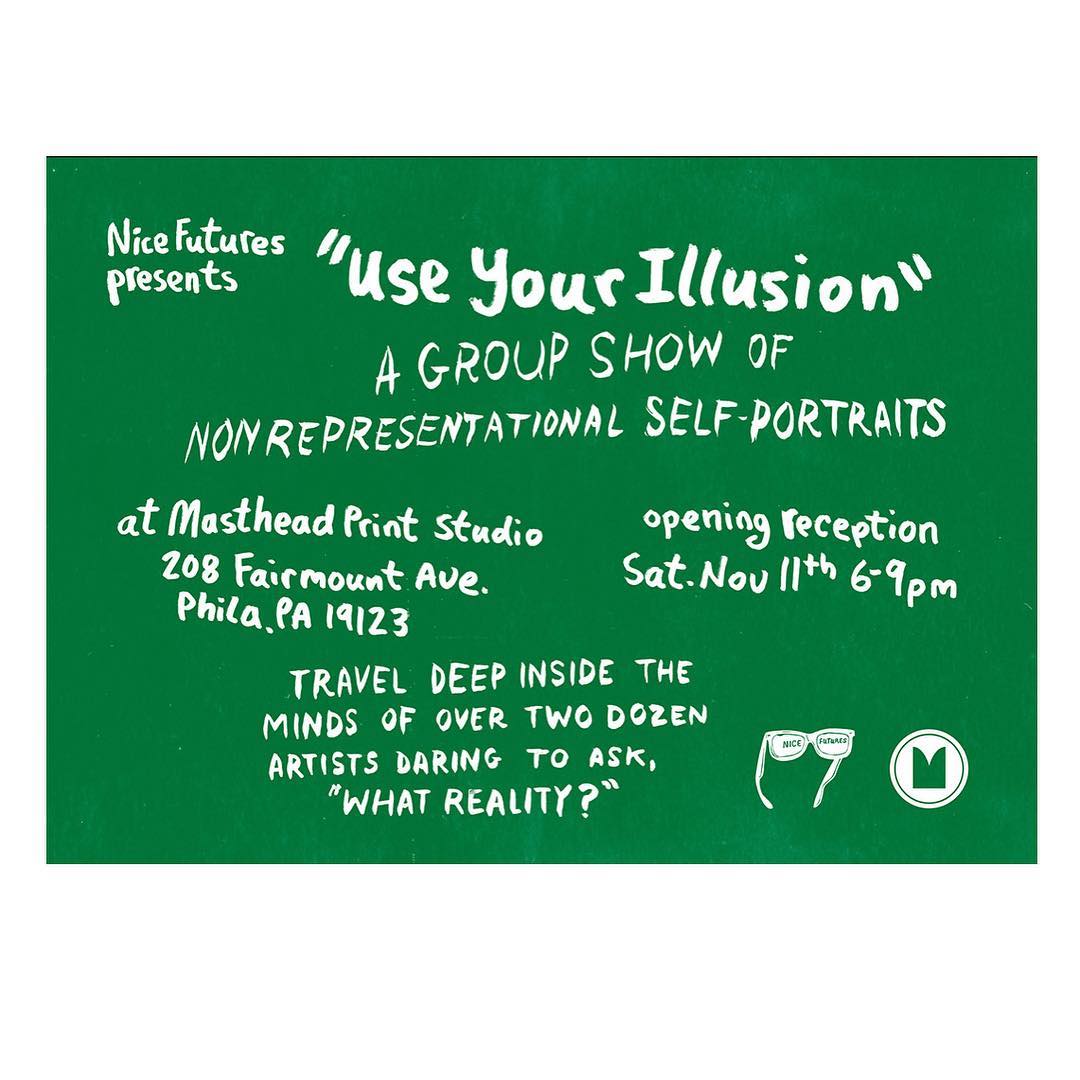 Nice Futures
presents
"Use Your Illusion"
A GROUP SHOW OF
NONREPRESENTATIONAL SELF-PORTRAITS
at Masthead Print Studio
208 Fairmount Ave.
Phila. PA 19123
opening reception
Sat. Nov 11th 6-9pm
TRAVEL DEEP INSIDE THE
MINDS OF OVER TWO DOZEN
ARTISTS DARING TO ASK,
"WHAT REALITY?"
NICE FUTURES
M